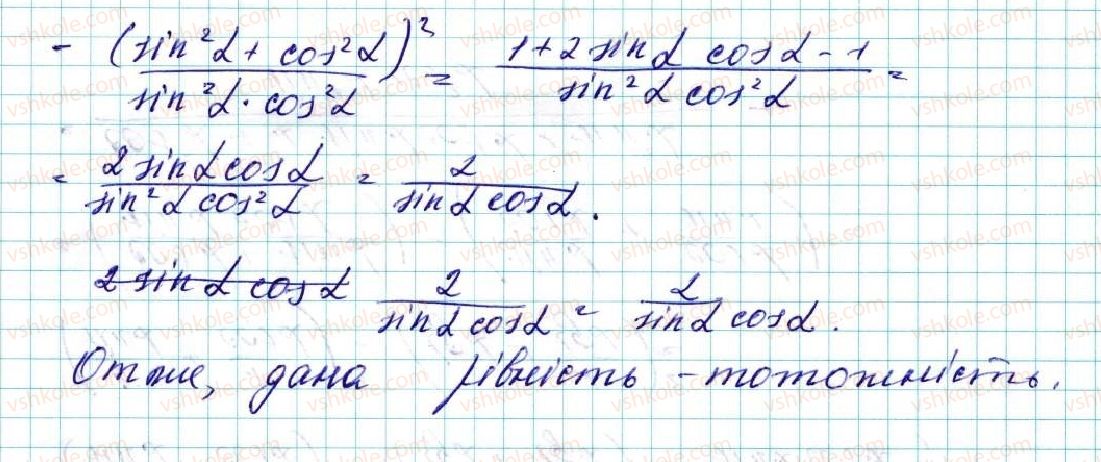 - (sin²α + cos²α)² / sin²α · cos²α = 1 + 2 sin α cos α - 1 / sin²α cos²α =
= 2 sin α cos α / sin²α cos²α = 2 / sin α cos α.
2 sin α cos α 2 / sin α cos α = 2 / sin α cos α.
Отже, дана рівність - тотожність.